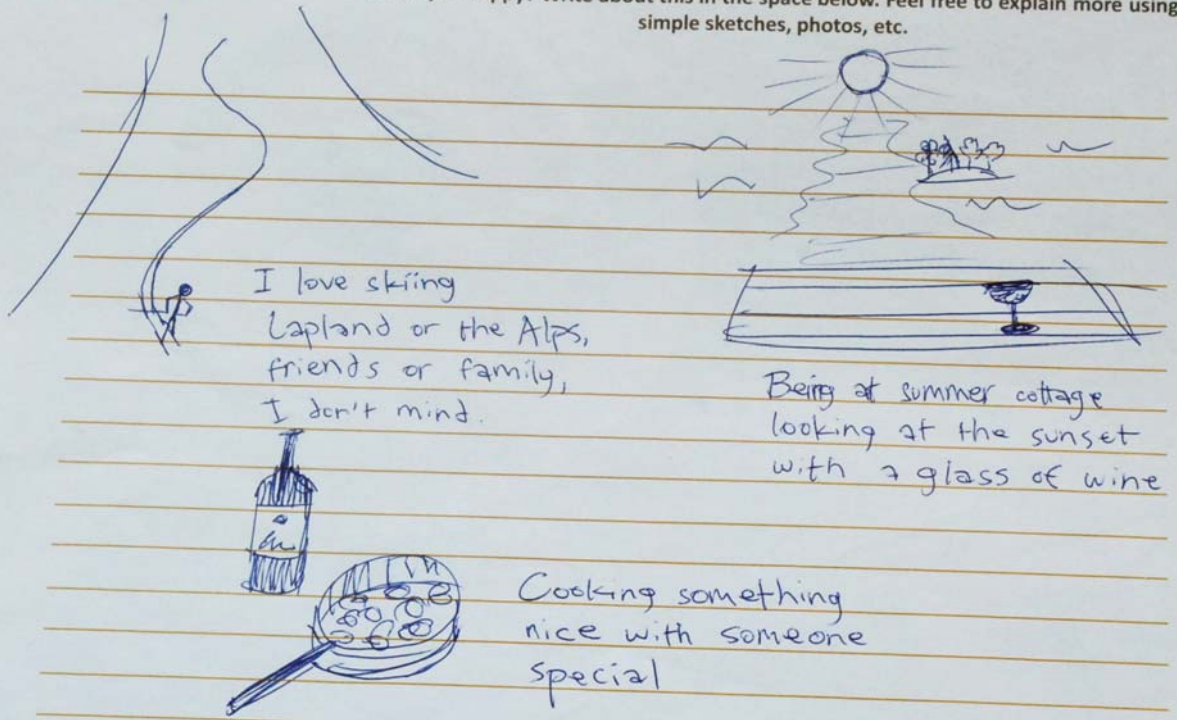 write about this in the space below. Feel free to explain more using
simple sketches, photos, etc.
I love skiing
Lapland or the Alps,
friends or family,
I don't mind.
Being at summer cottage
looking at the sunset
with a glass of wine
Cooking something
nice with someone
special